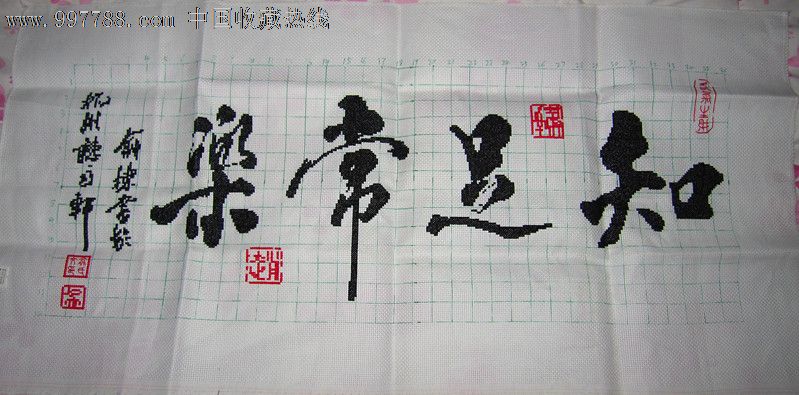 www.997788.com 中国收藏热线
知足常樂
俞棟書於
杭州聽雨軒